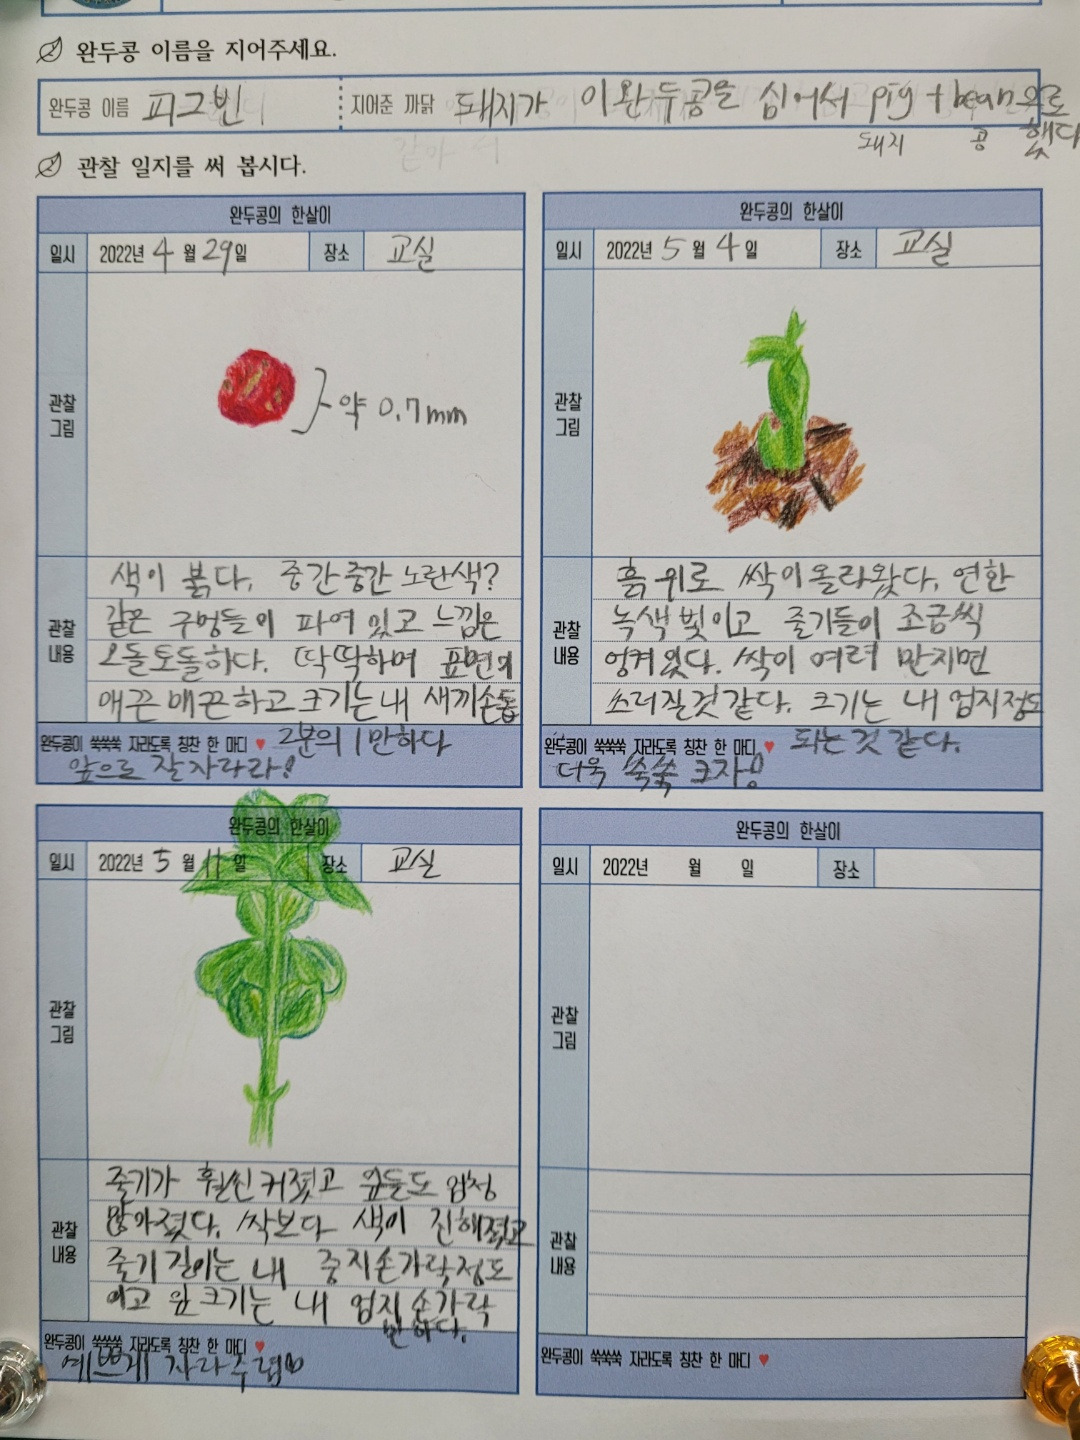 완두콩 이름을 지어주세요.
완두콩 이름 피그빈 지어준 까닭 돼지가 이 완두콩을 심어서 pig + bean으로
돼지 콩 했다
관찰 일지를 써 봅시다.
완두콩의 한살이
일시 2022년 4월 29일 장소 교실
관찰
그림
약 0.7mm
관찰
내용
색이 붉다. 중간중간 노란색?
같은 구멍들이 파여 있고 느낌은
오돌토돌하다. 딱딱하며 표면이
매끈매끈하고 크기는 내 새끼손톱
2분의 1만하다
완두콩이 쑥쑥쑥 자라도록 칭찬 한 마디 ♥
앞으로 잘 자라라!
완두콩의 한살이
일시 2022년 5월 4일 장소 교실
관찰
그림
관찰
내용
흙 위로 싹이 올라왔다. 연한
녹색 빛이고 줄기들이 조금씩
엉켜 있다. 싹이 여려 만지면
쓰러질것 같다. 크기는 내 엄지정도
되는 것 같다.
완두콩이 쑥쑥쑥 자라도록 칭찬 한 마디 ♥
더욱 쑥쑥 크자!
완두콩의 한살이
일시 2022년 5월 11일 장소 교실
관찰
그림
관찰
내용
줄기가 훨씬 커졌고 잎들도 엄청
많아졌다. 싹보다 색이 진해졌고
줄기 길이는 내 중지손가락정도
이고 잎 크기는 내 엄지 손가락
만하다.
완두콩이 쑥쑥쑥 자라도록 칭찬 한 마디 ♥
예쁘게 자라주렴
완두콩의 한살이
일시 2022년 월 일 장소
관찰
그림
관찰
내용
완두콩이 쑥쑥쑥 자라도록 칭찬 한 마디 ♥